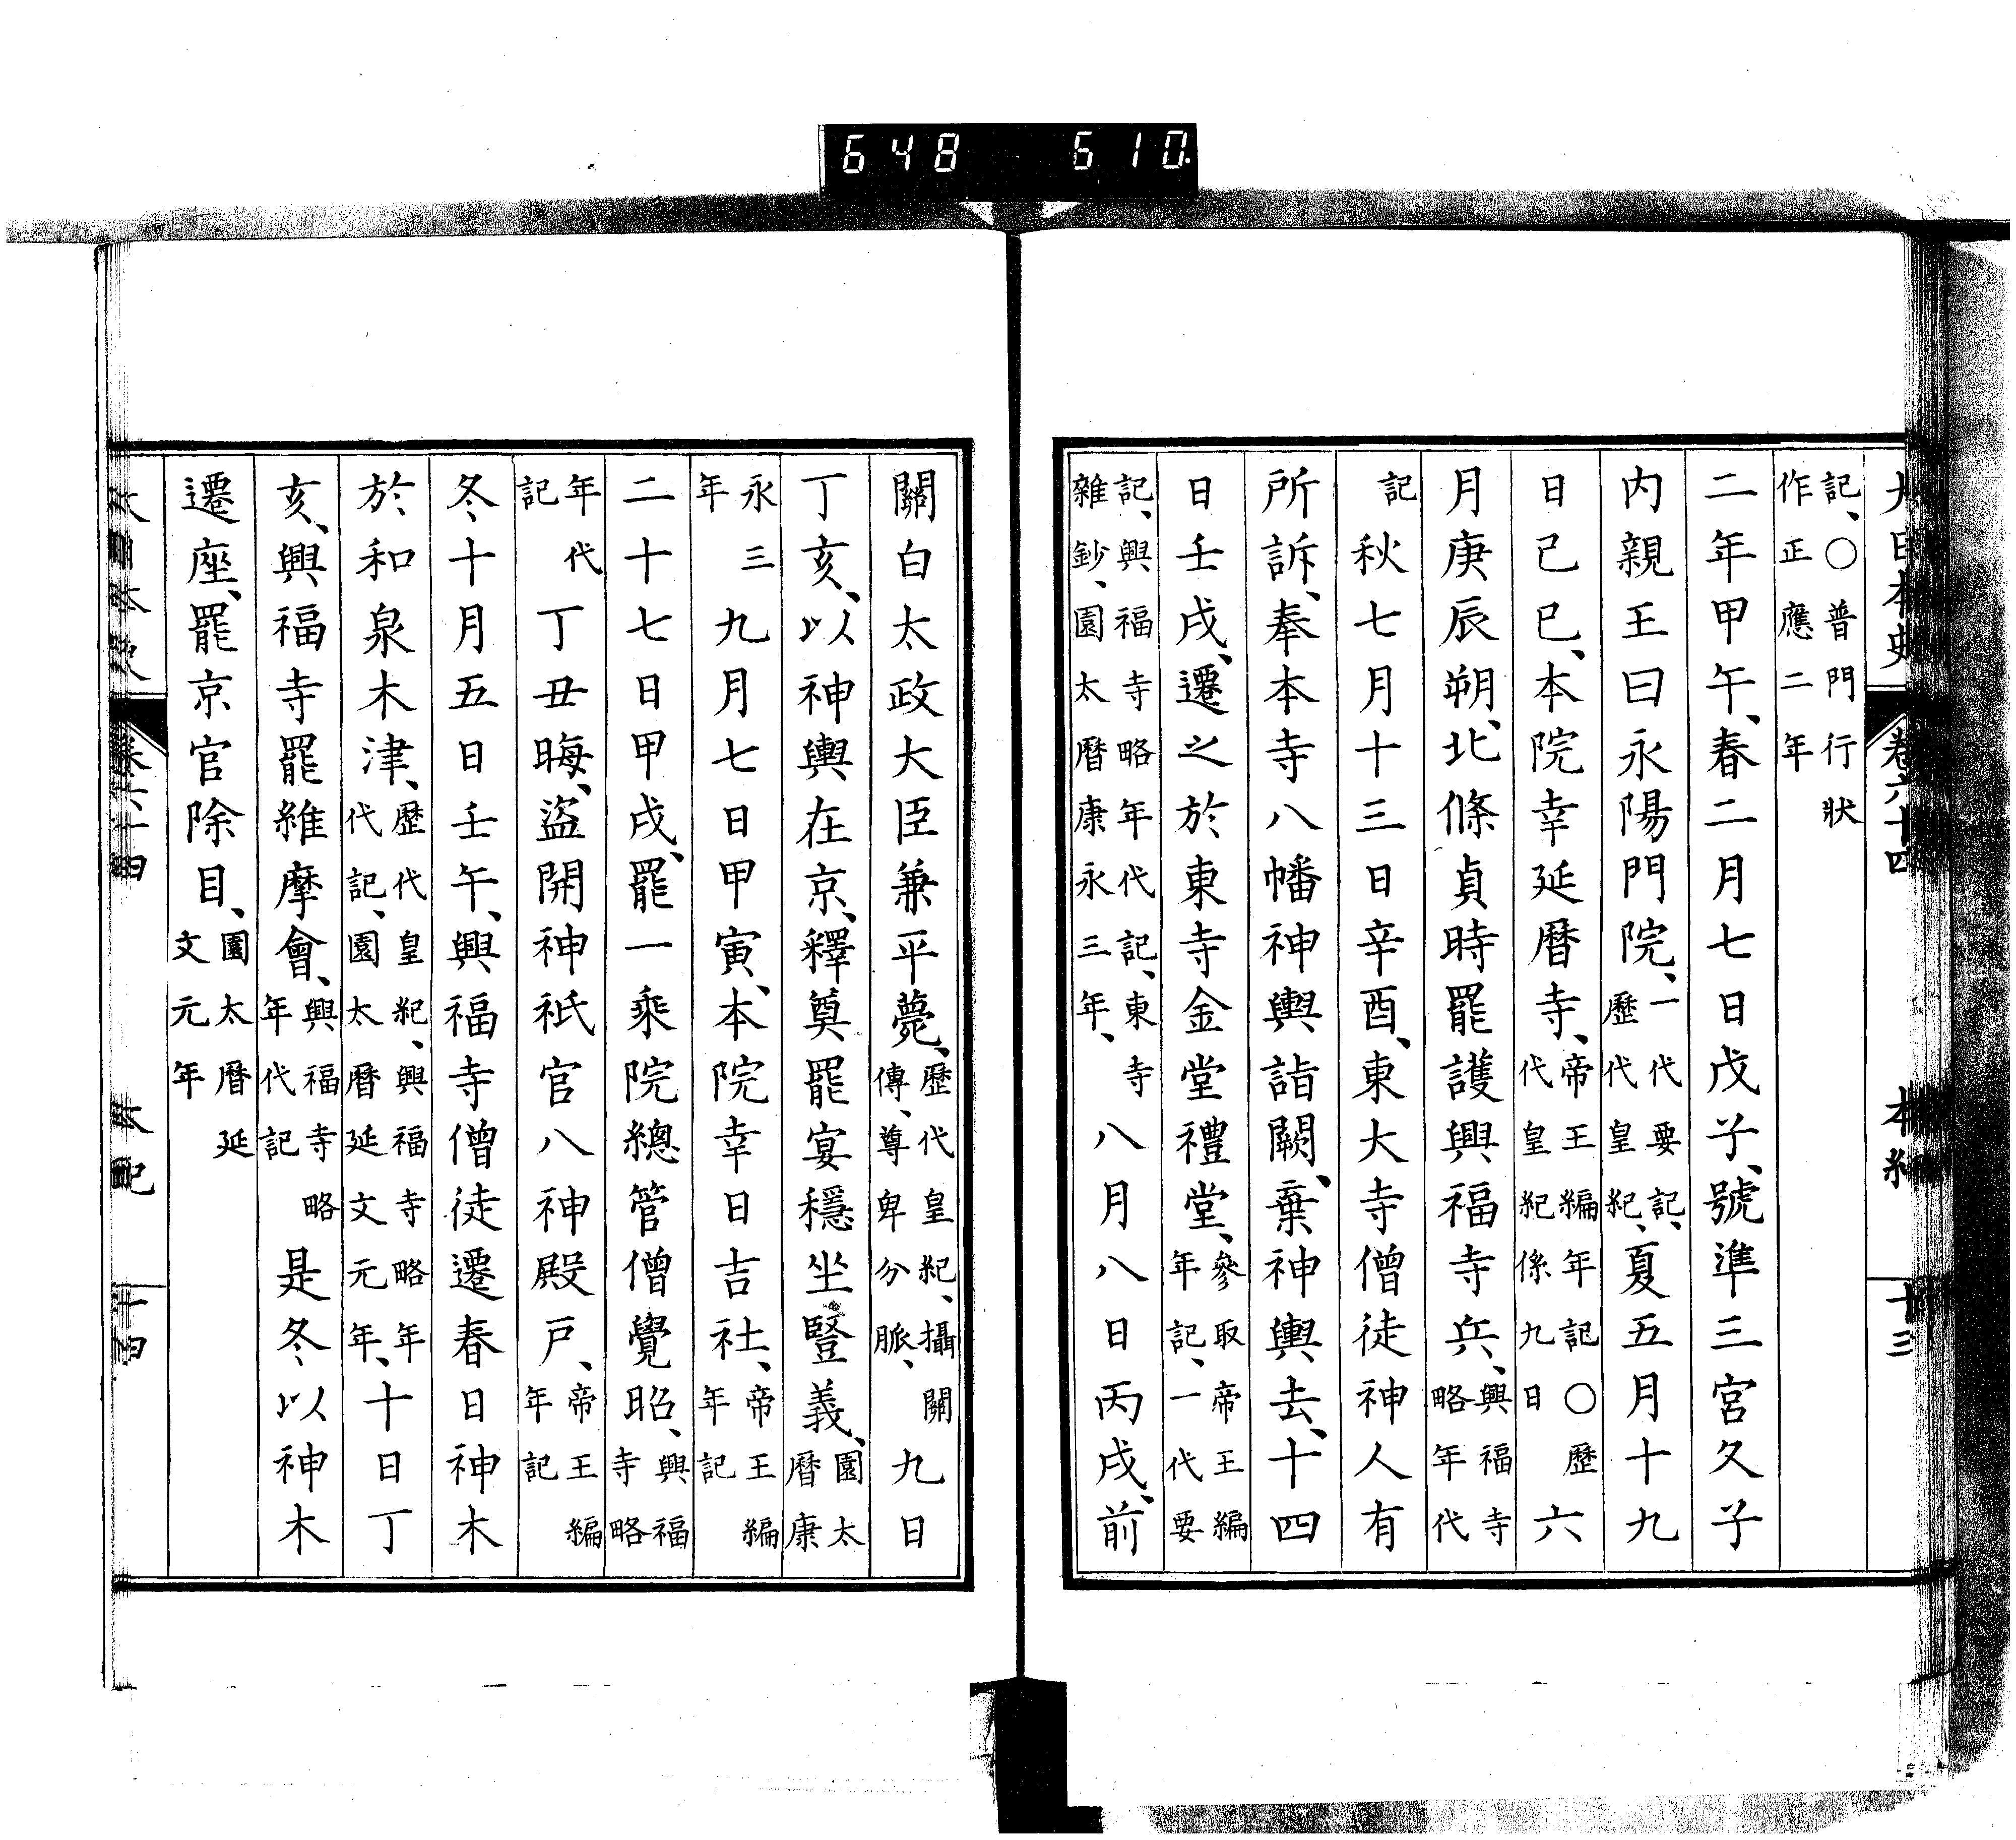 648 510
大日本史 卷六十四 本紀 十三
記、○普門行狀作正應二年
二年甲午、春二月七日戊子、號準三宮久子
內親王曰永陽門院、一代要記、歷代皇紀、夏五月十九
日己巳、本院幸延曆寺、帝王編年記○歷代皇紀係九日六
月庚辰朔、北條貞時罷護興福寺兵、興福寺略年代
記秋七月十三日辛酉、東大寺僧徒神人有
所訴、奉本寺八幡神輿詣闕、棄神輿、去、十四
日壬戌、遷之於東寺金堂禮堂、參取帝王編年記、一代要
記、興福寺略年代記、東寺雜鈔、園太曆康永三年、八月八日丙戌、前
關白太政大臣兼平薨、歷代皇紀、攝關傳、尊卑分脈、九日
丁亥、以神輿在京、釋奠罷宴穩坐豎義、園太曆康
永三年九月七日甲寅、本院幸日吉社、帝王編年記
二十七日甲戌、罷一乘院總管僧覺昭、興福寺略
年代記丁丑晦、盜開神祇官八神殿戶、帝王編年記
冬、十月五日壬午、興福寺僧徒遷春日神木
於和泉木津、歷代皇紀、興福寺略年代記、園太曆延文元年、十日丁
亥、興福寺罷維摩會、興福寺略年代記是冬、以神木
遷座、罷京官除目、園太曆延文元年